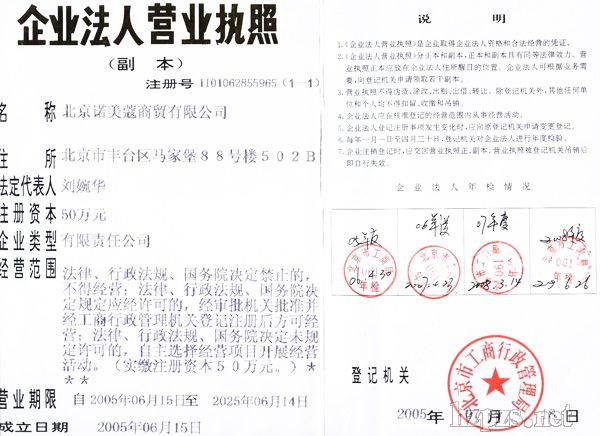 企业法人营业执照
（副 本）
注册号 1101062855965（1—1）
名 称 北京诺美蔻商贸有限公司
住 所 北京市丰台区马家堡８８号楼５０２Ｂ
法定代表人 刘婉华
注册资本 50万元
企业类型 有限责任公司
经营范围 法律、行政法规、国务院决定禁止的，
不得经营；法律、行政法规、国务院决
定规定应经许可的，经审批机关批准并
经工商行政管理机关登记注册后方可经
营；法律、行政法规、国务院决定未规
定许可的，自主选择经营项目开展经营
活动。（实缴注册资本５０万元。）＊
＊＊
营业期限 自 2005年06月15日至 2025年06月14日
成立日期 2005年06月15日
说 明
1.《企业法人营业执照》是企业取得企业法人资格和合法经营的凭证。
2.《企业法人营业执照》分正本和副本，正本和副本具有同等法律效力。
营业执照正本应放在企业法人住所醒目的位置。企业法人可根据业务需
要，向登记机关申请领取若干副本。
3.营业执照不得伪造、涂改、出租、出借、转让。除登记机关外，其他任何单
位和个人均不得扣留、收缴和吊销。
4.企业法人应在核准登记的经营范围内从事经营活动。
5.企业法人登记注册事项发生变化时，应向原登记机关申请变更登记。
6.每年一月一日至四月三十日，登记机关对企业法人进行年度检验。
7.企业注销登记时，应交回营业执照正、副本。营业执照被登记机关吊销后
即自行失效。
企业法人年检情况
06年度 07年度 2008年度
北京市工商 年检
2007.4.23 2008.3.14
登记机关
北京市工商行政管理局
2005年 月 日